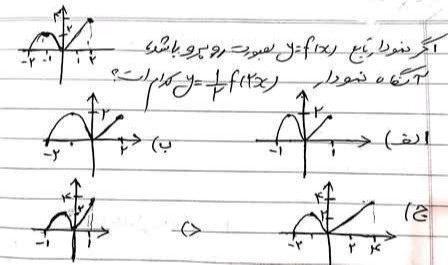 اگر نمودار تابع y=f(x) بصورت روبرو باشد،
آنگاه نمودار y=½f(2x) کدام است؟
-۲ -۱ ۱ ۲ ۲ ۴
الف) ۲ -۱ ۱
ب) ۲ -۲ ۲
ج) ۴ ۲ -۲ ۲ ۴
د) ۴ ۲ -۱ ۱